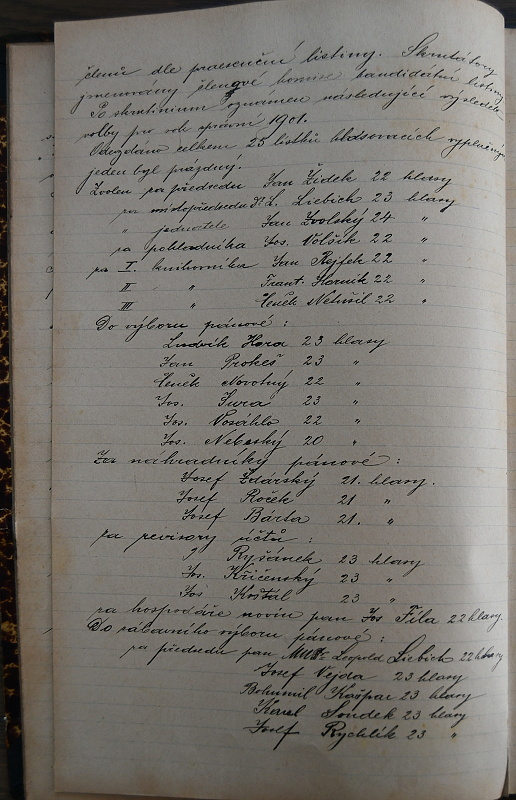 členů dle praesenční listiny. Skrutátory
jmenovány členové komise kandidátní listiny
Po skrutinium oznámen následující výsledek
volby pro rok správní 1901.
Odevzdáno celkem 25 lístků hlasovacích
jeden byl prázdný.
Zvolen za předsedu Jan Žídek 22 hlasy
za místopředsedu Dr. L. Liebich 23 hlasy
" jednatele Jan Zvolský 24 "
za pokladníka Jos. Volšík 22 "
za I. knihovníka Jan Rejfek 22 "
II " Frant. Horník 22 "
III " Čeněk Netušil 22 "
Do výboru pánové:
Ludvík Hora 23 hlasy
Jan Prokeš 23 "
Čeněk Novotný 22 "
Jos. Sura 23 "
Jos. Vosáhlo 22 "
Jos. Nebeský 20 "
Za náhradníky pánové:
Josef Žďárský 21. hlasy.
Josef Roček 21 "
Josef Bárta 21. "
za revisory účtů:
Ryšánek 23 hlasy
Jos. Křičenský 23 "
Jos Košťál 23 "
za hospodáře novin pan Jos Fila 22 hlasy.
Do zábavního výboru pánové:
za předsedu pan MUDr. Leopold Liebich 22 hlasy
Josef Vejda 23 hlasy
Bohumil Kašpar 23 hlasy
Karel Soudek 23 hlasy
Josef Rychlík 23 "